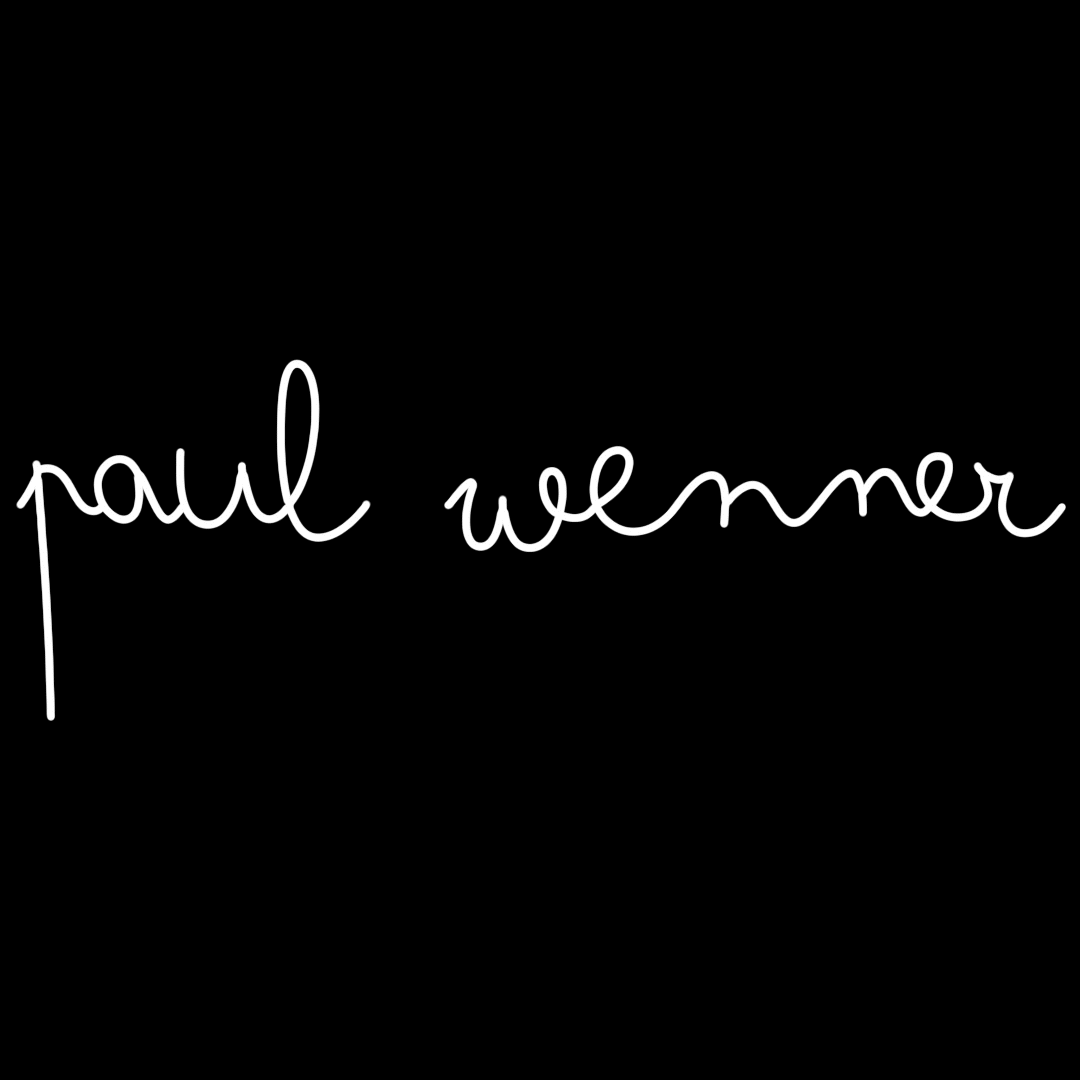 paul wenner